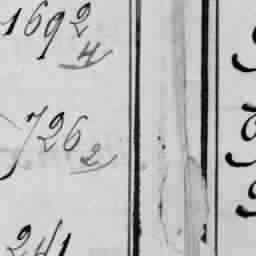 1692
4
7262
241